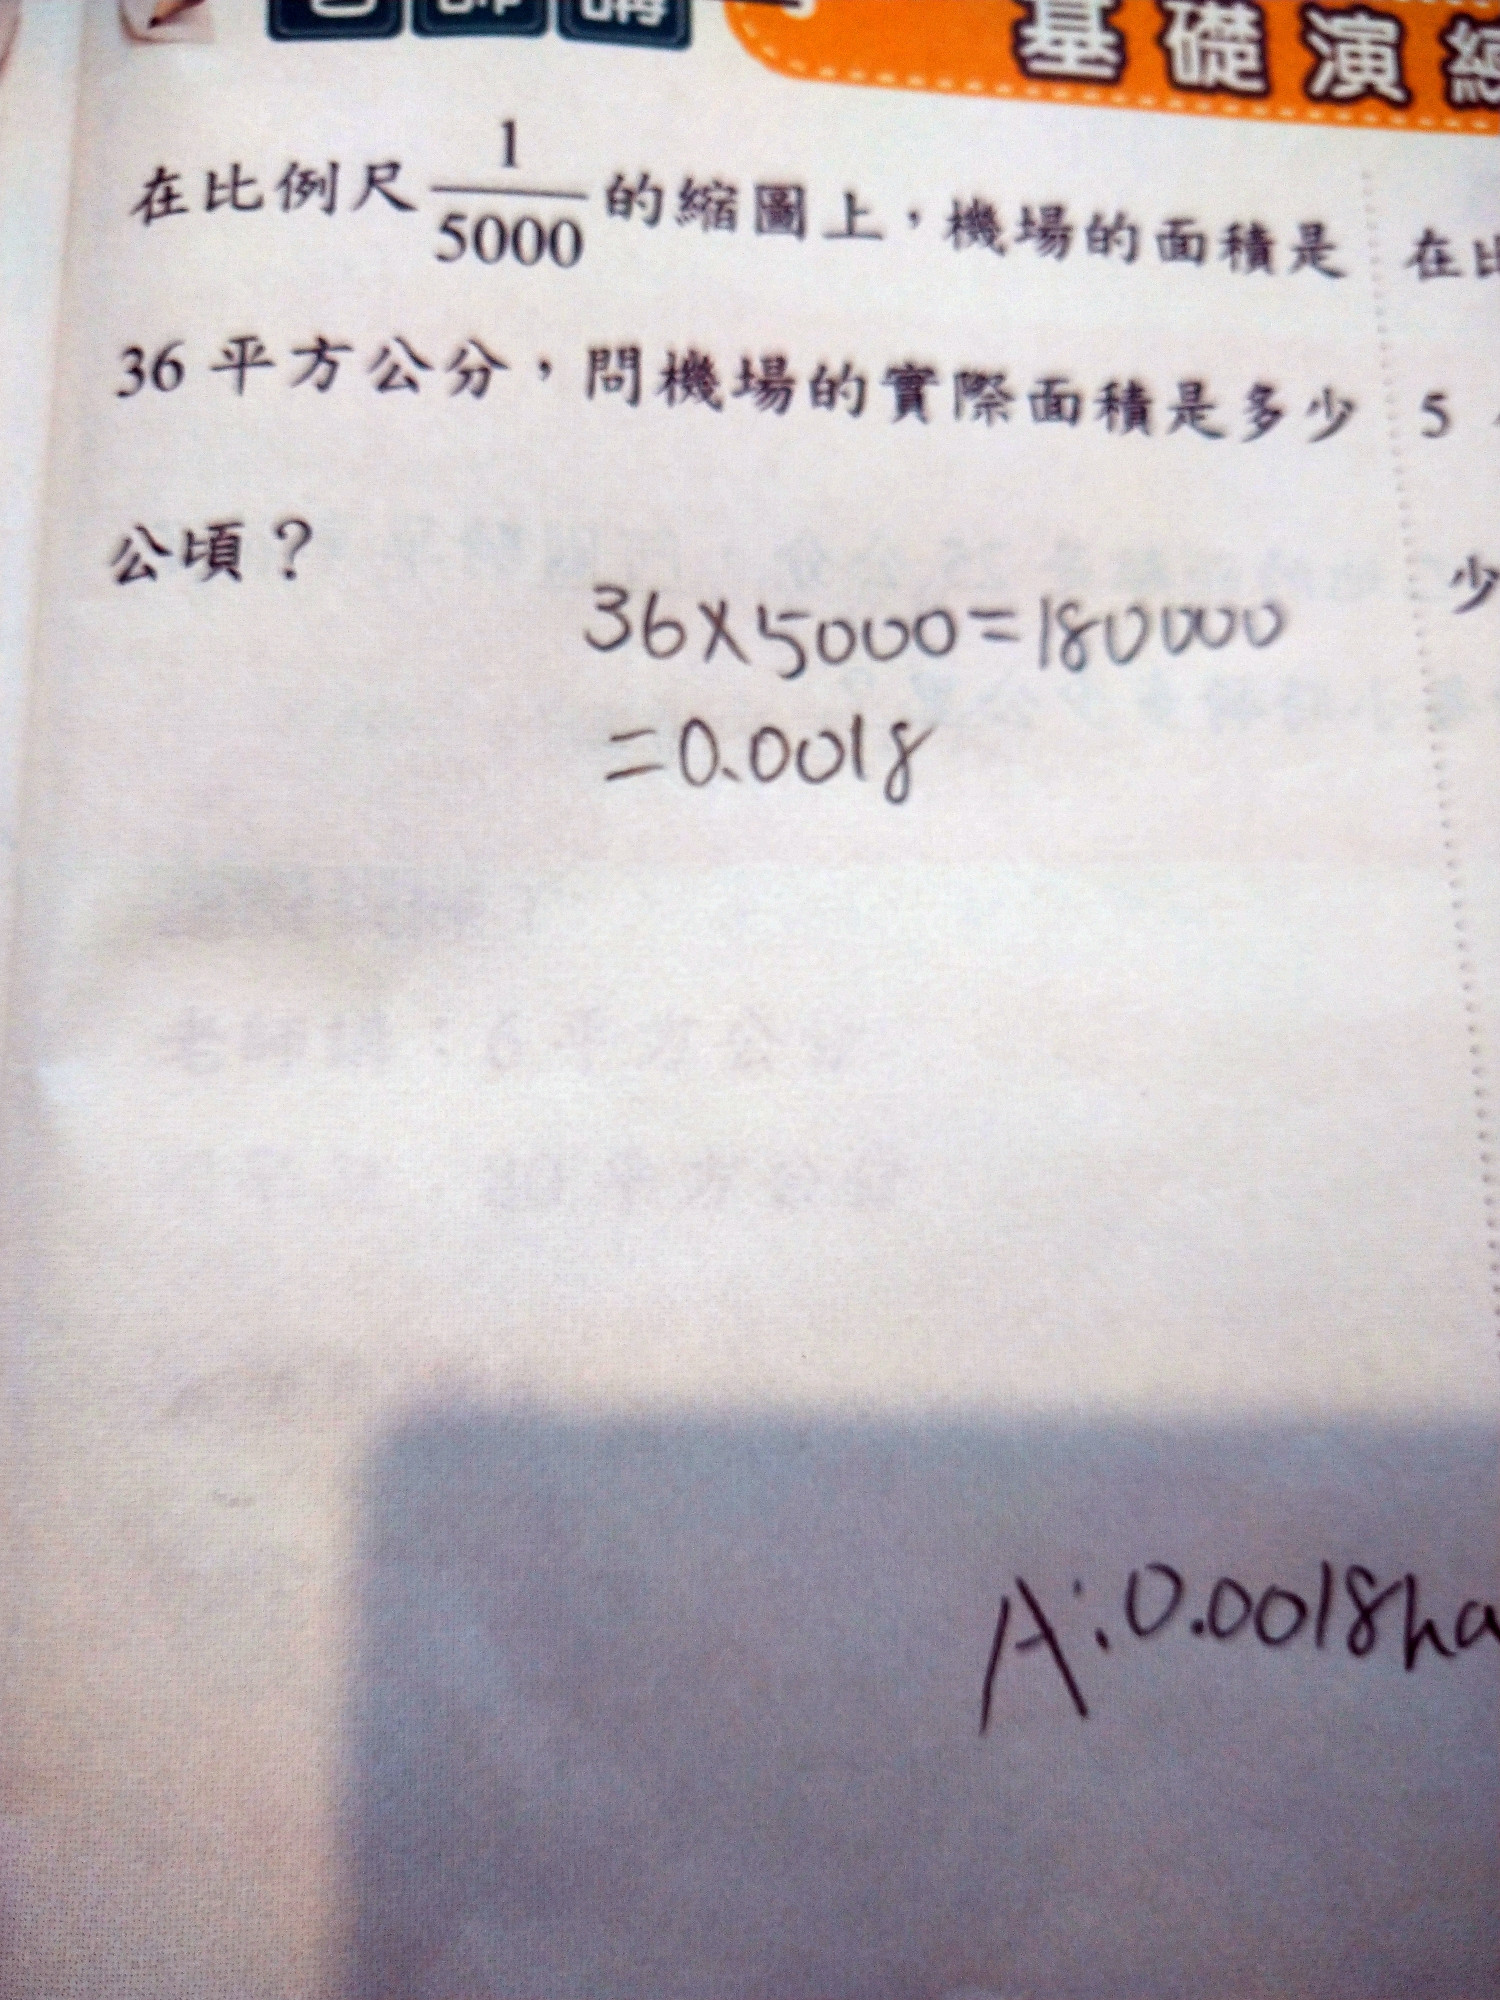 老師講
基礎演練
在比例尺 1/5000 的縮圖上，機場的面積是
36 平方公分，問機場的實際面積是多少
公頃？
在比
5
少
36×5000=180000
=0.0018
A:0.0018ha